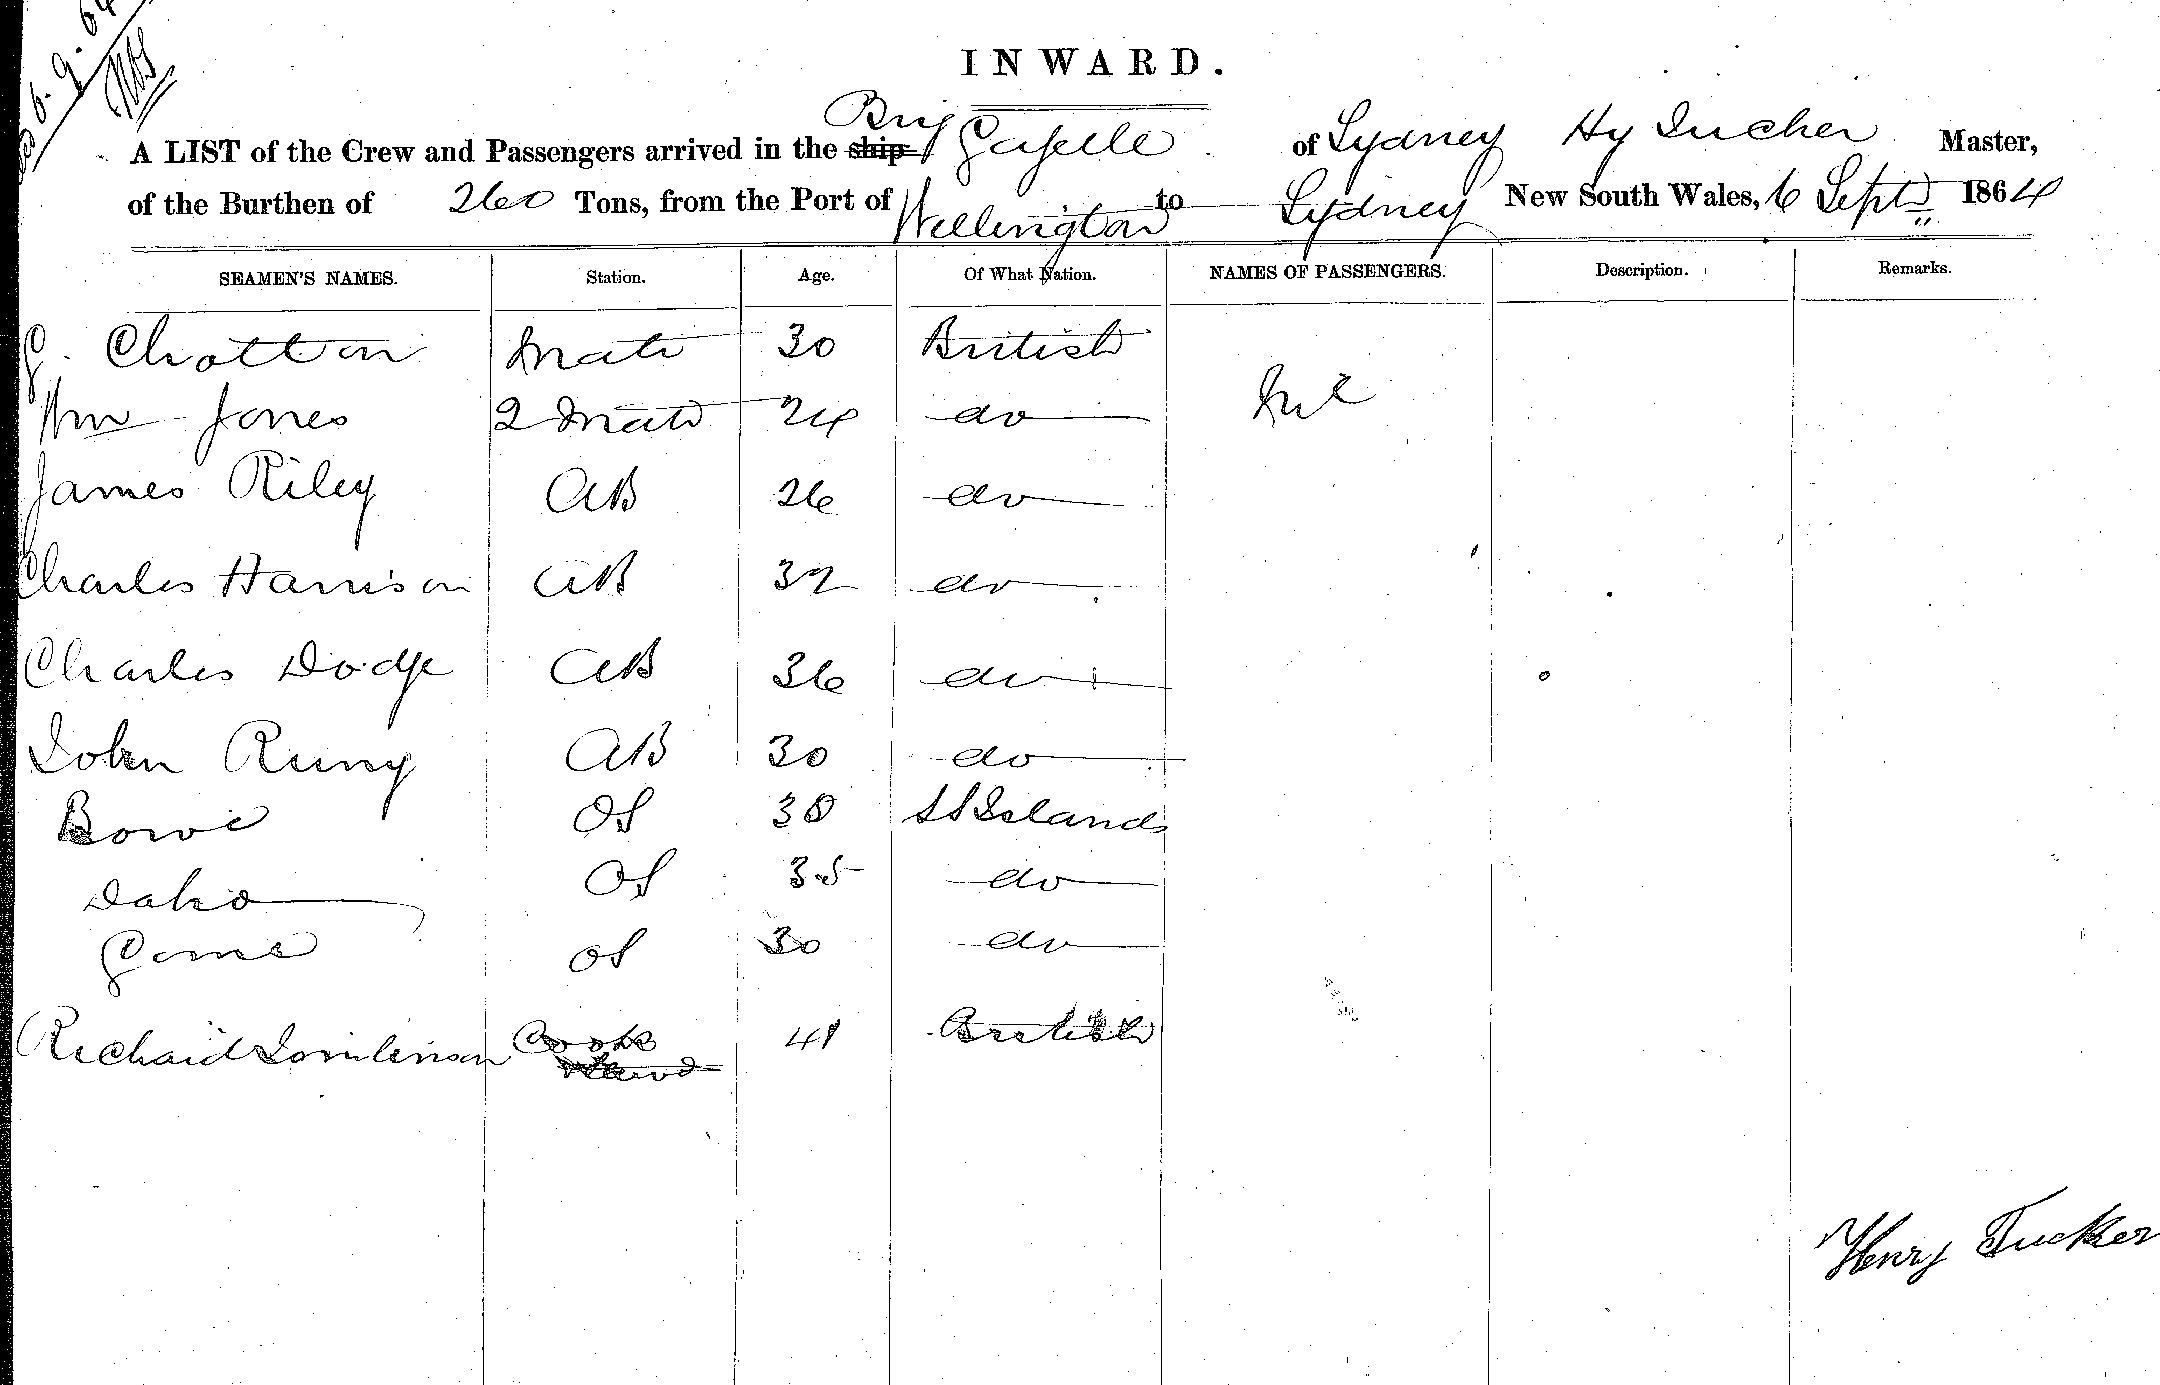 6. 9. 64
INWARD.
Brig
A LIST of the Crew and Passengers arrived in the ship Gazelle of Sydney Hy Tucker Master,
of the Burthen of 260 Tons, from the Port of Wellington to Sydney New South Wales, 6 Septr 1864
SEAMEN'S NAMES. Station. Age. Of What Nation. NAMES OF PASSENGERS. Description. Remarks.
G. Chatton Mate 30 British
Wm Jones 2 Mate 24 do Nil
James Riley AB 26 do
Charles Harrison AB 32 do
Charles Dodge AB 36 do
John AB 30 do
Bowe OS 38 SS Islands
OS 35 do
OS 30 do
Richard Tomlinson Cook 41 British
Henry Tucker